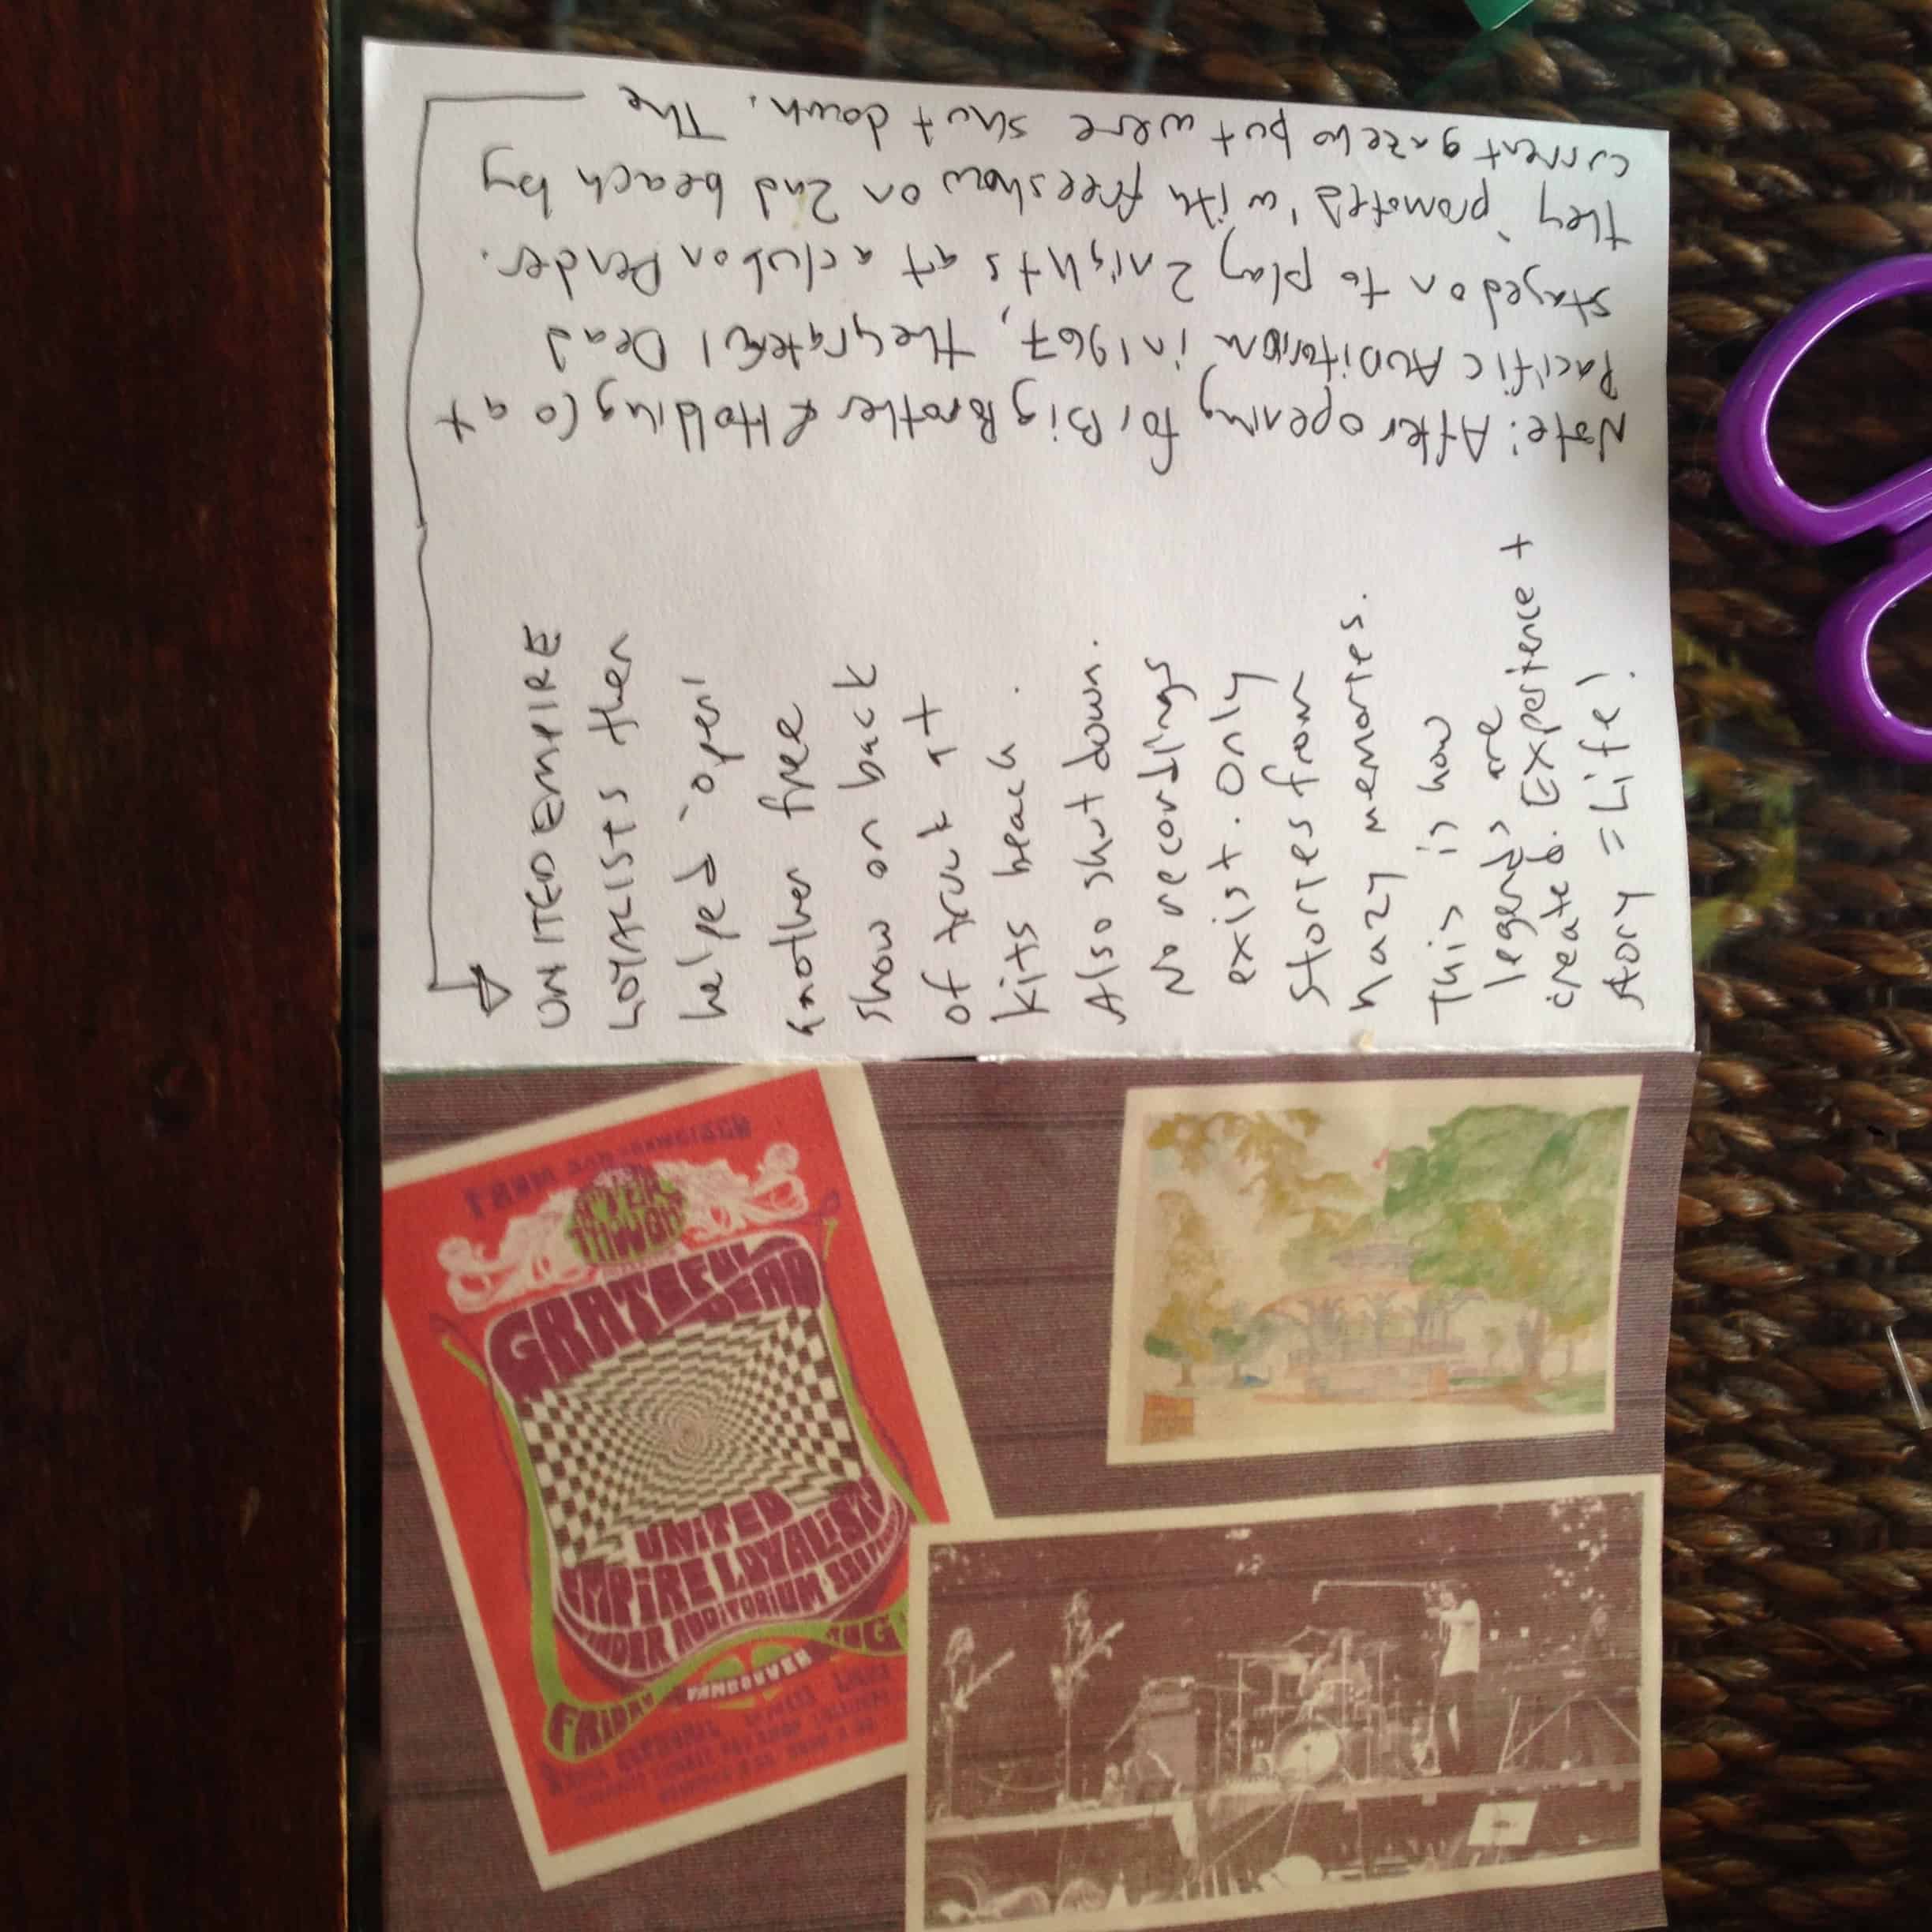 Note: After opening for Big Brother & Holding Co at
Pacific Auditorium in 1967, the grateful Dead
stayed on to play 2 nights at a club on Pender.
they 'promoted' with free show on 2nd beach by
current gazebo but were shut down. The
UNITED EMPIRE
LOYALISTS then
helped 'open'
another free
show on back
of truck at
kits beach.
Also shut down.
No recordings
exist. Only
stories from
hazy memories.
This is how
legends are
created. Experience +
story = Life!
FROM SAN FRANCISCO
AFTER
THOUGHT
GRATEFUL
DEAD
UNITED
EMPIRE LOYALISTS
AUDITORIUM
FRIDAY
VANCOUVER